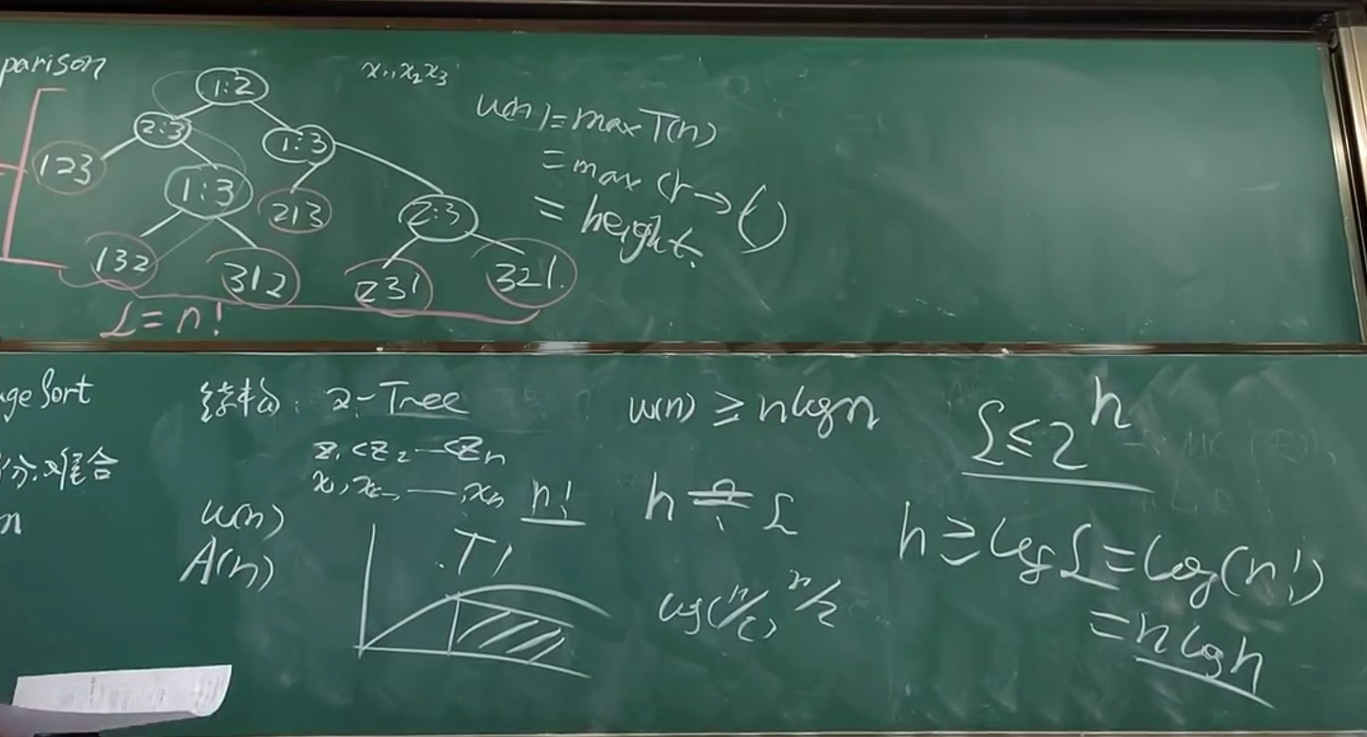 parison
x₁, x₂ x₃
1:2
2:3
1:3
123
1:3
213
2:3
132
312
231
321
L = n!
w(n) = max T(n)
= max (r → l)
= height.
ge Sort
n
结构: 2-Tree
z₁ < z₂ — < zₙ
x₁, x₂, —, xₙ n!
w(n)
A(n)
w(n) ≥ nlgn
h = L
log(n/2)^n/2
L ≤ 2^h
h ≥ log L = log(n!)
= nlgn